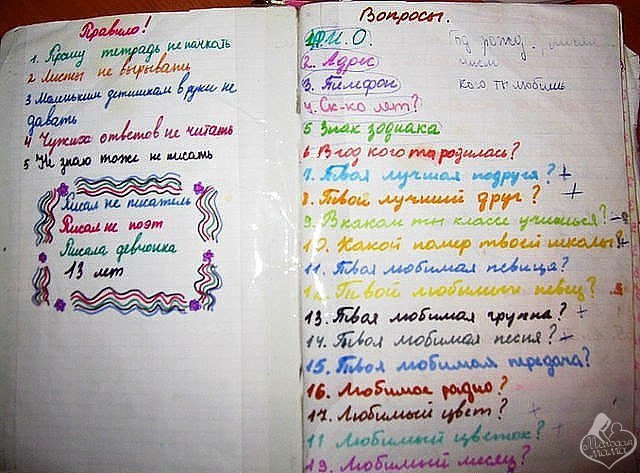 Правило!
1. Прошу тетрадь не пачкать
2 Листы не вырывать
3 Маленьким детишкам в руки не
давать
4 Чужих ответов не читать
5 Не знаю тоже не писать
Писал не писатель
Писал не поэт
Писала девчонка
13 лет
Вопросы.
1. Ф.И.О.
Год рожд.
2. Адрес
число
3. Тилефон
кого ты любишь
4. Ск-ко лет?
5 Знак зодиака
6 В год кого та родилась?
7. Твоя лучшая подруга? +
8. Твой лучший друг? +
9. В каком ты классе учишься?
10. Какой номер твоей школы?
11. Твоя любимая певица?
12. Твой любимый певец?
13. Твоя любимая группа? +
14. Твоя любимая песня? +
15. Твоя любимая передача?
16. Любимое радио?
17. Любимый цвет? +
11 Любимый цветок? +
19. Любимый месяц?
Молодая
мама